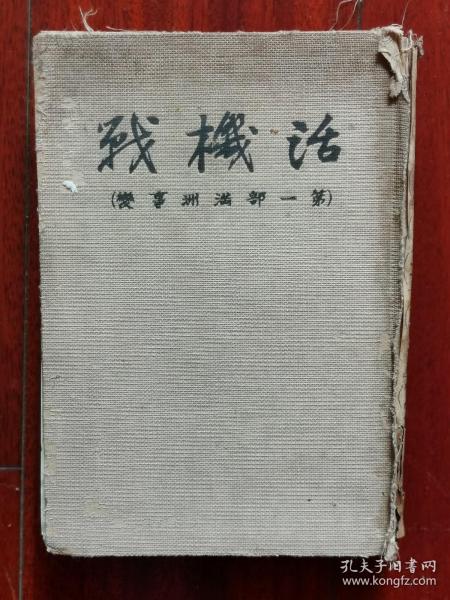 活機戦
(第一部満洲事変)
孔夫子旧书网
www.kongfz.com